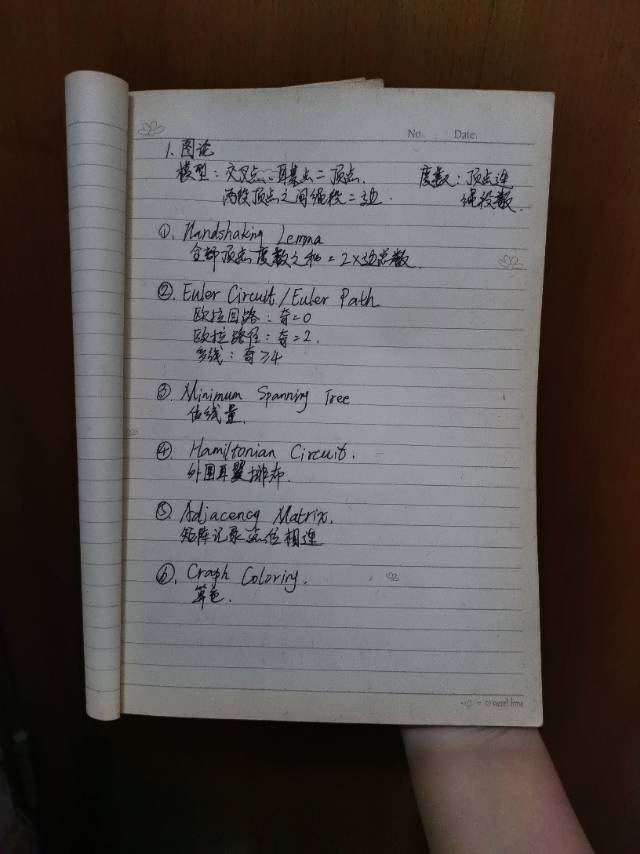 No: Date:
1. 图论
模型: 交叉点、耳翼点=顶点. 度数: 顶点连
两段顶点之间绳段=边. 绳段数.
①. Handshaking Lemma
全部顶点度数之和=2×边总数.
②. Euler Circuit/Euler Path
欧拉回路: 奇=0
欧拉路径: 奇=2.
多线: 奇≥4
③. Minimum Spanning Tree
估线量.
④. Hamiltonian Circuit.
外围耳翼排布.
⑤. Adjacency Matrix.
矩阵记录点位相连
⑥. Graph Coloring.
算色.